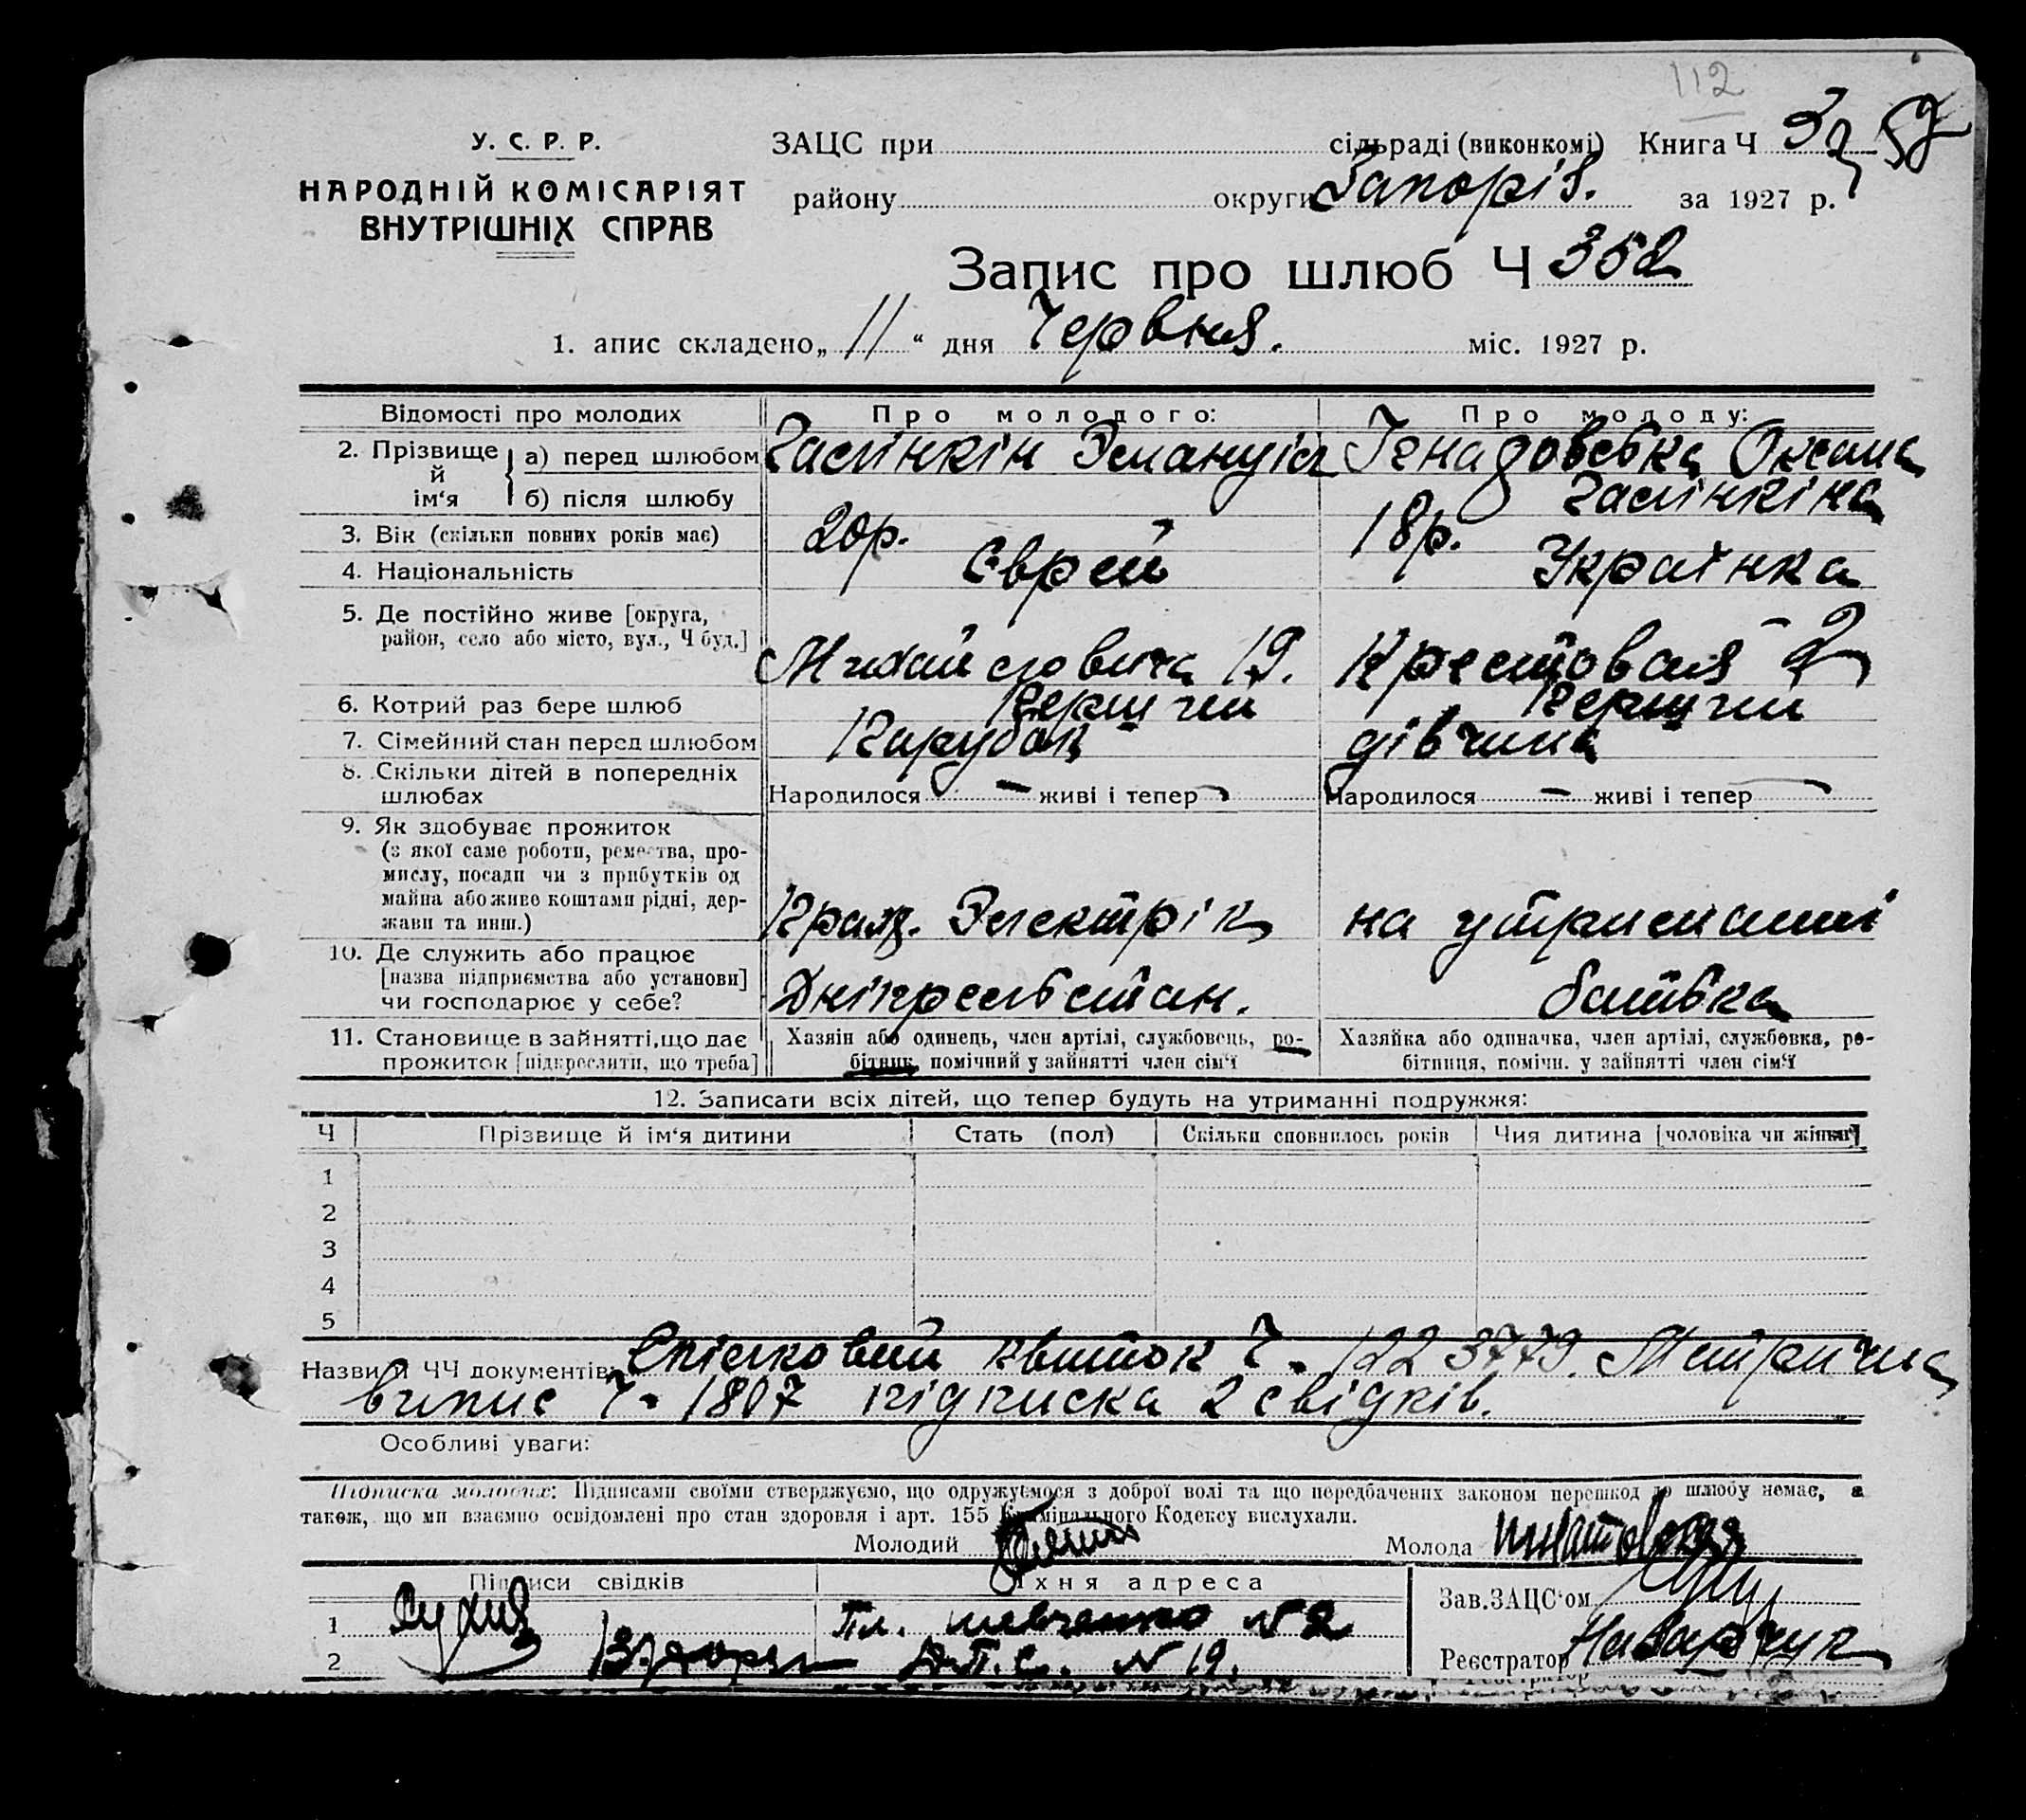 112
У. С. Р. Р.
НАРОДНІЙ КОМІСАРІЯТ
ВНУТРІШНІХ СПРАВ
ЗАЦС при сільраді (виконкомі) Книга Ч 3
району округи Запоріз. за 1927 р.
Запис про шлюб Ч 352
1. апис складено „ 11 “ дня Червня. міс. 1927 р.
Відомості про молодих Про молодого: Про молоду:
2. Прізвище й ім‘я а) перед шлюбом Оксана
б) після шлюбу
3. Вік (скільки повних років має) 20р. 18р.
4. Національність Єврей Українка
5. Де постійно живе [округа,
район, село або місто, вул., Ч буд.] 19. Крестовая 2
6. Котрий раз бере шлюб Перший Перший
7. Сімейний стан перед шлюбом Парубок дівчина
8. Скільки дітей в попередніх
шлюбах Народилося — живі і тепер — Народилося — живі і тепер —
9. Як здобуває прожиток
(з якої саме роботи, ремества, про-
мислу, посади чи з прибутків од
майна або живе коштами рідні, дер-
жави та инш.) Електрік на утриманні
10. Де служить або працює
[назва підприємства або установи]
чи господарює у себе? Дніпрельстан. батька
11. Становище в зайнятті, що дає
прожиток [підкреслити, що треба]
Хазяїн або одинець, член артілі, службовець, ро-
бітник, помічний у зайнятті член сім‘ї
Хазяйка або одиначка, член артілі, службовка, ро-
бітниця, помічн. у зайнятті член сім‘ї
12. Записати всіх дітей, що тепер будуть на утриманні подружжя:
Ч Прізвище й ім‘я дитини Стать (пол) Скільки сповнилось років Чия дитина [чоловіка чи жінки]
1
2
3
4
5
Назви й ЧЧ документів: Спілковий квиток Ч. 1223779. Метрична
випис Ч. 1807 підписка 2 свідків.
Особливі уваги:
Підписка молодих: Підписами своїми стверджуємо, що одружуємося з доброї волі та що передбачених законом перешкод до шлюбу немає, а
також, що ми взаємно освідомлені про стан здоровля і арт. 155 Кримінального Кодексу вислухали.
Молодий Молода
Підписи свідків Їхня адреса
Зав. ЗАЦС‘ом
1 Пл. Шевченко N 2
2 N 19.
Реєстратор